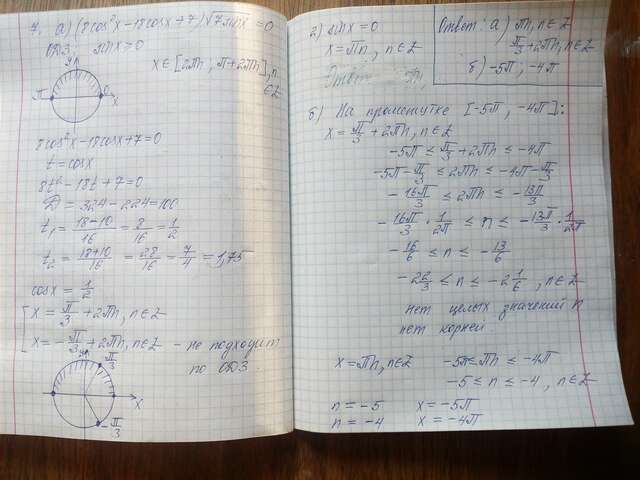 7. а) (8cos²x - 18cosx + 7)√7sinx = 0
ОДЗ: sinx ≥ 0
x ∈ [2πn; π+2πn], n ∈ Z
y
π
0
x
8cos²x - 18cosx + 7 = 0
t = cosx
8t² - 18t + 7 = 0
D = 324 - 224 = 100
t₁ = (18-10)/16 = 8/16 = 1/2
t₂ = (18+10)/16 = 28/16 = 7/4 = 1,75
cosx = 1/2
x = π/3 + 2πn, n ∈ Z
x = -π/3 + 2πn, n ∈ Z - не подходит
по ОДЗ.
y
π/3
x
-π/3
2) sinx = 0
x = πn, n ∈ Z
Ответ: а) πn, n ∈ Z
π/3 + 2πn, n ∈ Z
б) -5π; -4π
б) На промежутке [-5π, -4π]:
x = π/3 + 2πn, n ∈ Z
-5π ≤ π/3 + 2πn ≤ -4π
-5π - π/3 ≤ 2πn ≤ -4π - π/3
-16π/3 ≤ 2πn ≤ -13π/3
-16π/3 · 1/2π ≤ n ≤ -13π/3 · 1/2π
-16/6 ≤ n ≤ -13/6
-2 2/3 ≤ n ≤ -2 1/6, n ∈ Z
нет целых значений n
нет корней.
x = πn, n ∈ Z
-5π ≤ πn ≤ -4π
-5 ≤ n ≤ -4, n ∈ Z
n = -5 x = -5π
n = -4 x = -4π